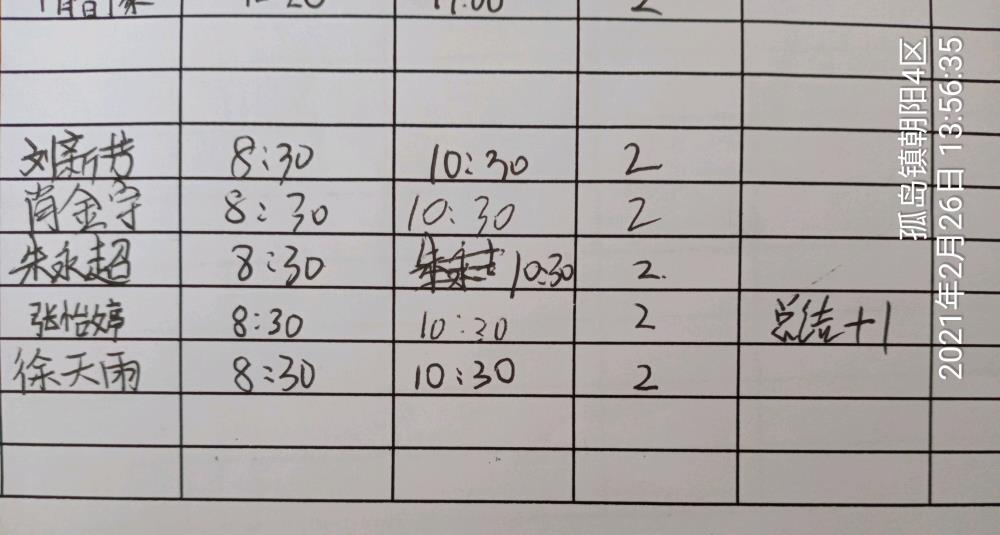 17:00 2
刘新芳 8:30 10:30 2
肖金宇 8:30 10:30 2
朱永超 8:30 10:30 2
张怡婷 8:30 10:30 2 总结+1
徐天雨 8:30 10:30 2
孤岛镇朝阳4区
2021年2月26日 13:56:35